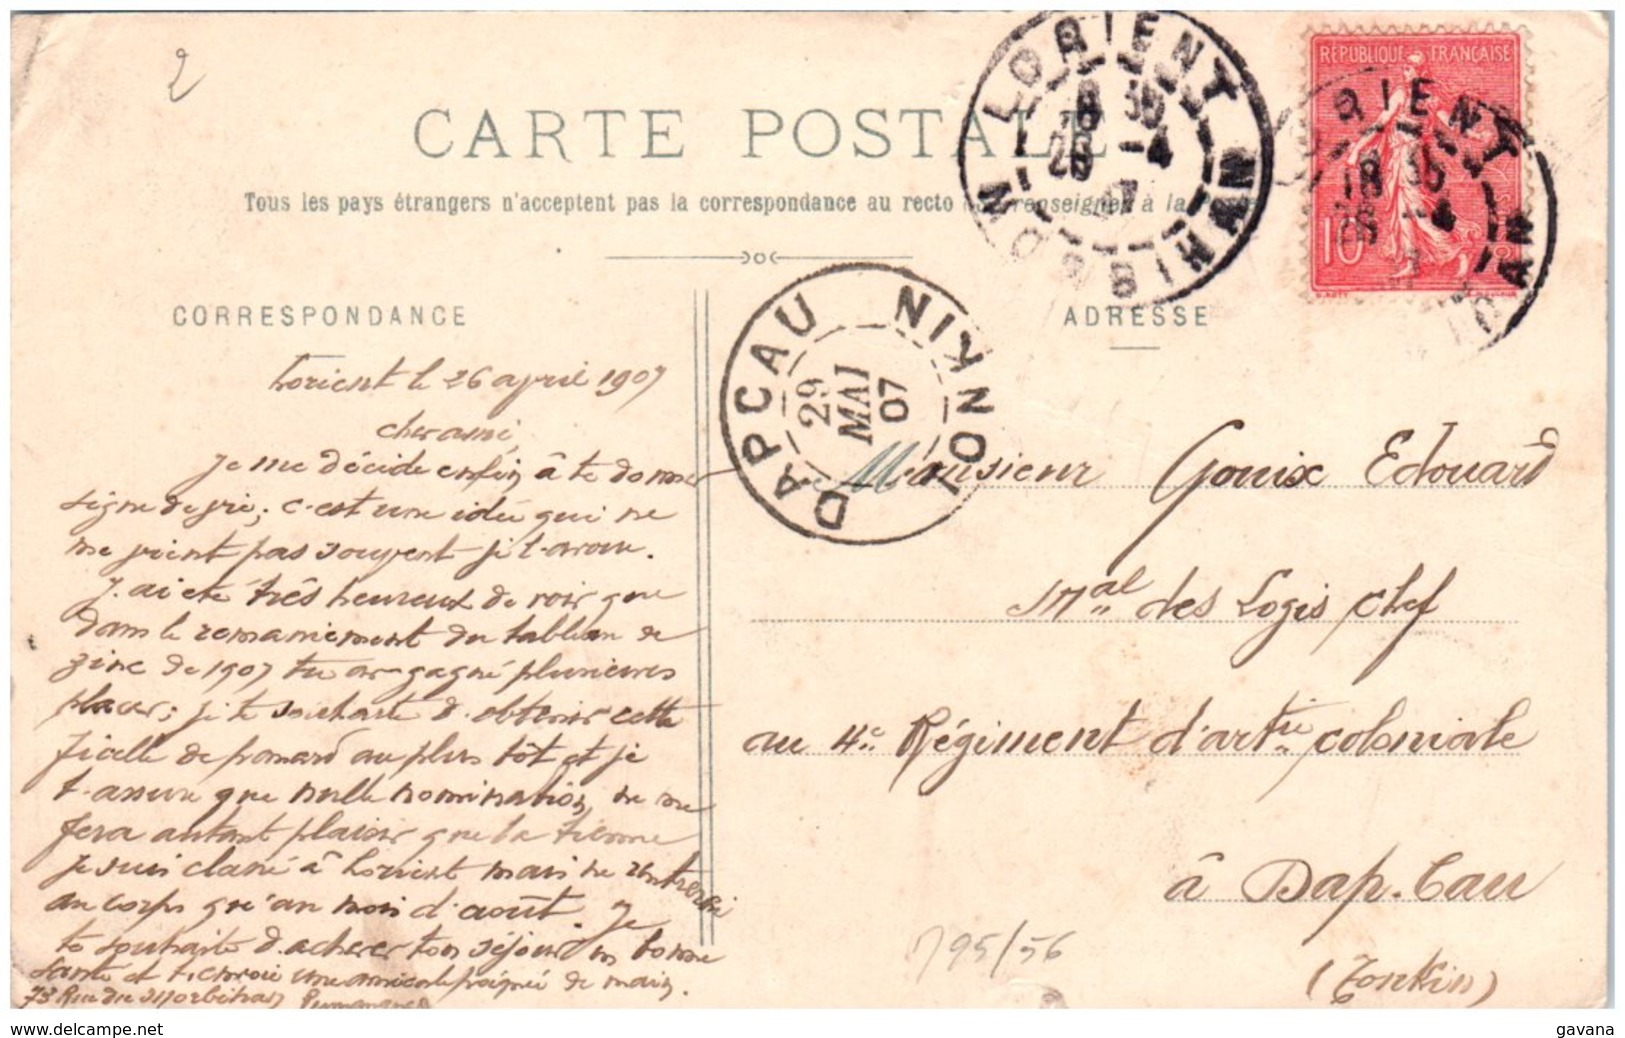 2
CARTE POSTALE
Tous les pays étrangers n'acceptent pas la correspondance au recto renseigner à la
CORRESPONDANCE
ADRESSE
LORIENT
MORBIHAN
18 35
26 -4
07
RÉPUBLIQUE FRANÇAISE
10
DAPCAU
TONKIN
29
MAI
07
Lorient le 26 avril 1907
cher ami,
Je me décide enfin à te donner
signe de vie; c'est une idée qui ne
me vient pas souvent je t'avoue.
J'ai été très heureux de voir que
dans le remaniement du tableau de
de 1907 tu as gagné plusieures
places; je te souhaite d'obtenir cette
ficelle de au plus tôt et je
t'assure que nulle nomination, ne me
fera autant plaisir que la tienne
Je suis classé à Lorient mais ne rentrerai
au corps qu'au mois d'août. Je
te souhaite d'achever ton séjour en bonne
santé et t'envoie une amicale poignée de main.
73 Rue du Morbihan
Monsieur Gouix Edouard
Mal des Logis chef
au 4e Régiment d'artie coloniale
à Dap-Cau
(Tonkin)
795/56
delcampe.net
gavana